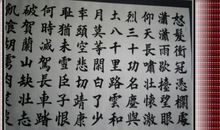 怒髮衝冠憑欄處
瀟瀟雨歇擡望眼
仰天長嘯壯懷激
烈三十功名塵與
土八千里路雲和
月莫等閒白了少
年頭空悲切靖康
恥猶未雪臣子恨
何時滅駕長車踏
破賀蘭山缺壯志